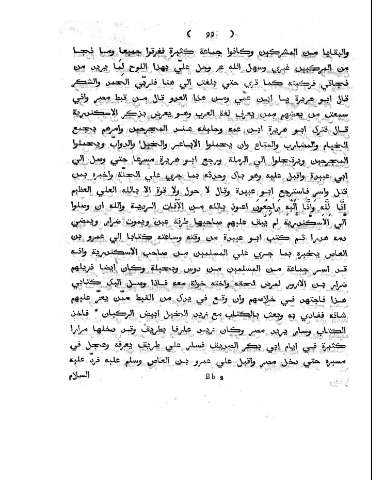 ( ٩٩ )
والبقايا مـن المشركين وكانوا جماعة كثيرة فغرقوا جميعا وما نجا
من المركبين غيري وسهل الله عز وجل عليّ بهذا اللوح لما يريد من
نجاتي فركبته كما تري حتي بلغت الي هنا فلربي الحمد والشكر
قال ابو هريرة يا ابن عمي ومن هذا العدو قال من قبط مصر واني
سمعت من بعضهم ممن يعرف لغة العرب وهو يعرض بذكر الاسكندرية
قال فترك ابو هريرة ابن عمه وحليفه عند المجروحين وامرهم بجمع
الخيام والمضارب والمتاع وان يحملوا الاباعر والخيل والدواب ويحملوا
المجروحين ويرتحلوا الي الرملة ورجع ابو هريرة مسرعا حتي وصل الي
ابي عبيدة واقبل عليه وهو باك وحدثه بما جري علي الجملة واخبره بمن
قتل واسر فاسترجع ابو عبيدة وقال لا حول ولا قوة الا بالله العلي العظيم
انا لله وانا اليه راجعون اعوذ بالله من الآفات الردية والله ان وصلوا
الي الاسكندرية لم يبق عليهم صاحبها طرفة عين ويموت ضرار ويمضي
دمه هدرا ثم كتب ابو عبيدة من وقته وساعته كتابا الي عمرو بن
العاص يخبره بما جري علي المسلمين من صاحب الاسكندرية وانه
قد اسر جماعة من المسلمين من دوس وبجيلة وكان ايضا نزيلهم
ضرار بن الازور لمرض لحقه واخته خولة معه فاذا وصل اليك كتابي
هذا فاجتهد في خلاصهم وان وقع في يدك من القبط ممن يعز عليهم
شانه ففادي به وبعث بالكتاب مع زيد الخيل ابيض الركبان * فاخذ
الكتاب وسار يريد مصر وكان زيد عارفا بطريق وقد دخلها مرارا
كثيرة في ايام ابي بكر الصديق فسار علي طريق يعرفه وعجل في
مسيره حتي دخل مصر واقبل علي عمرو بن العاص وسلم عليه فردّ عليه
Bb 2 السلام